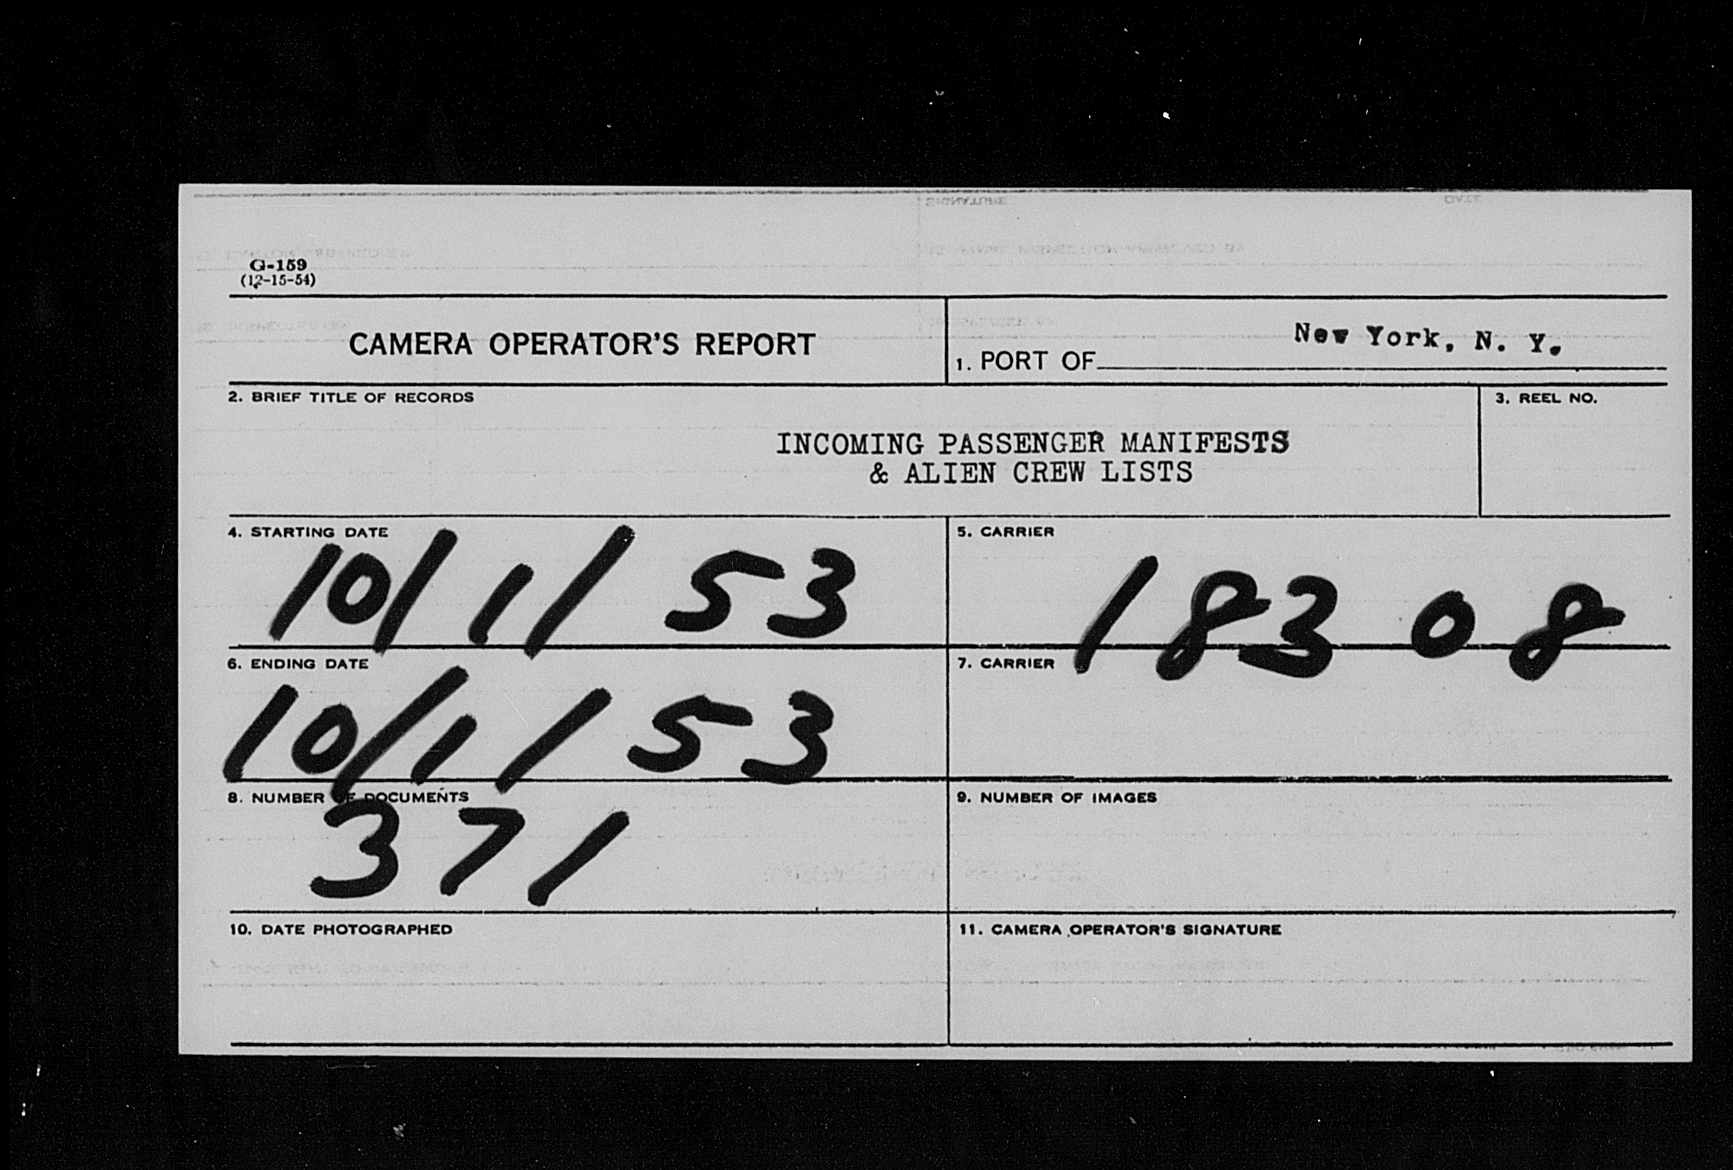 G-159
(12-15-54)
CAMERA OPERATOR'S REPORT
1. PORT OF New York, N. Y.
2. BRIEF TITLE OF RECORDS
INCOMING PASSENGER MANIFESTS
& ALIEN CREW LISTS
3. REEL NO.
4. STARTING DATE
10/1/53
5. CARRIER
18308
6. ENDING DATE
10/1/53
7. CARRIER
8. NUMBER OF DOCUMENTS
371
9. NUMBER OF IMAGES
10. DATE PHOTOGRAPHED
11. CAMERA OPERATOR'S SIGNATURE